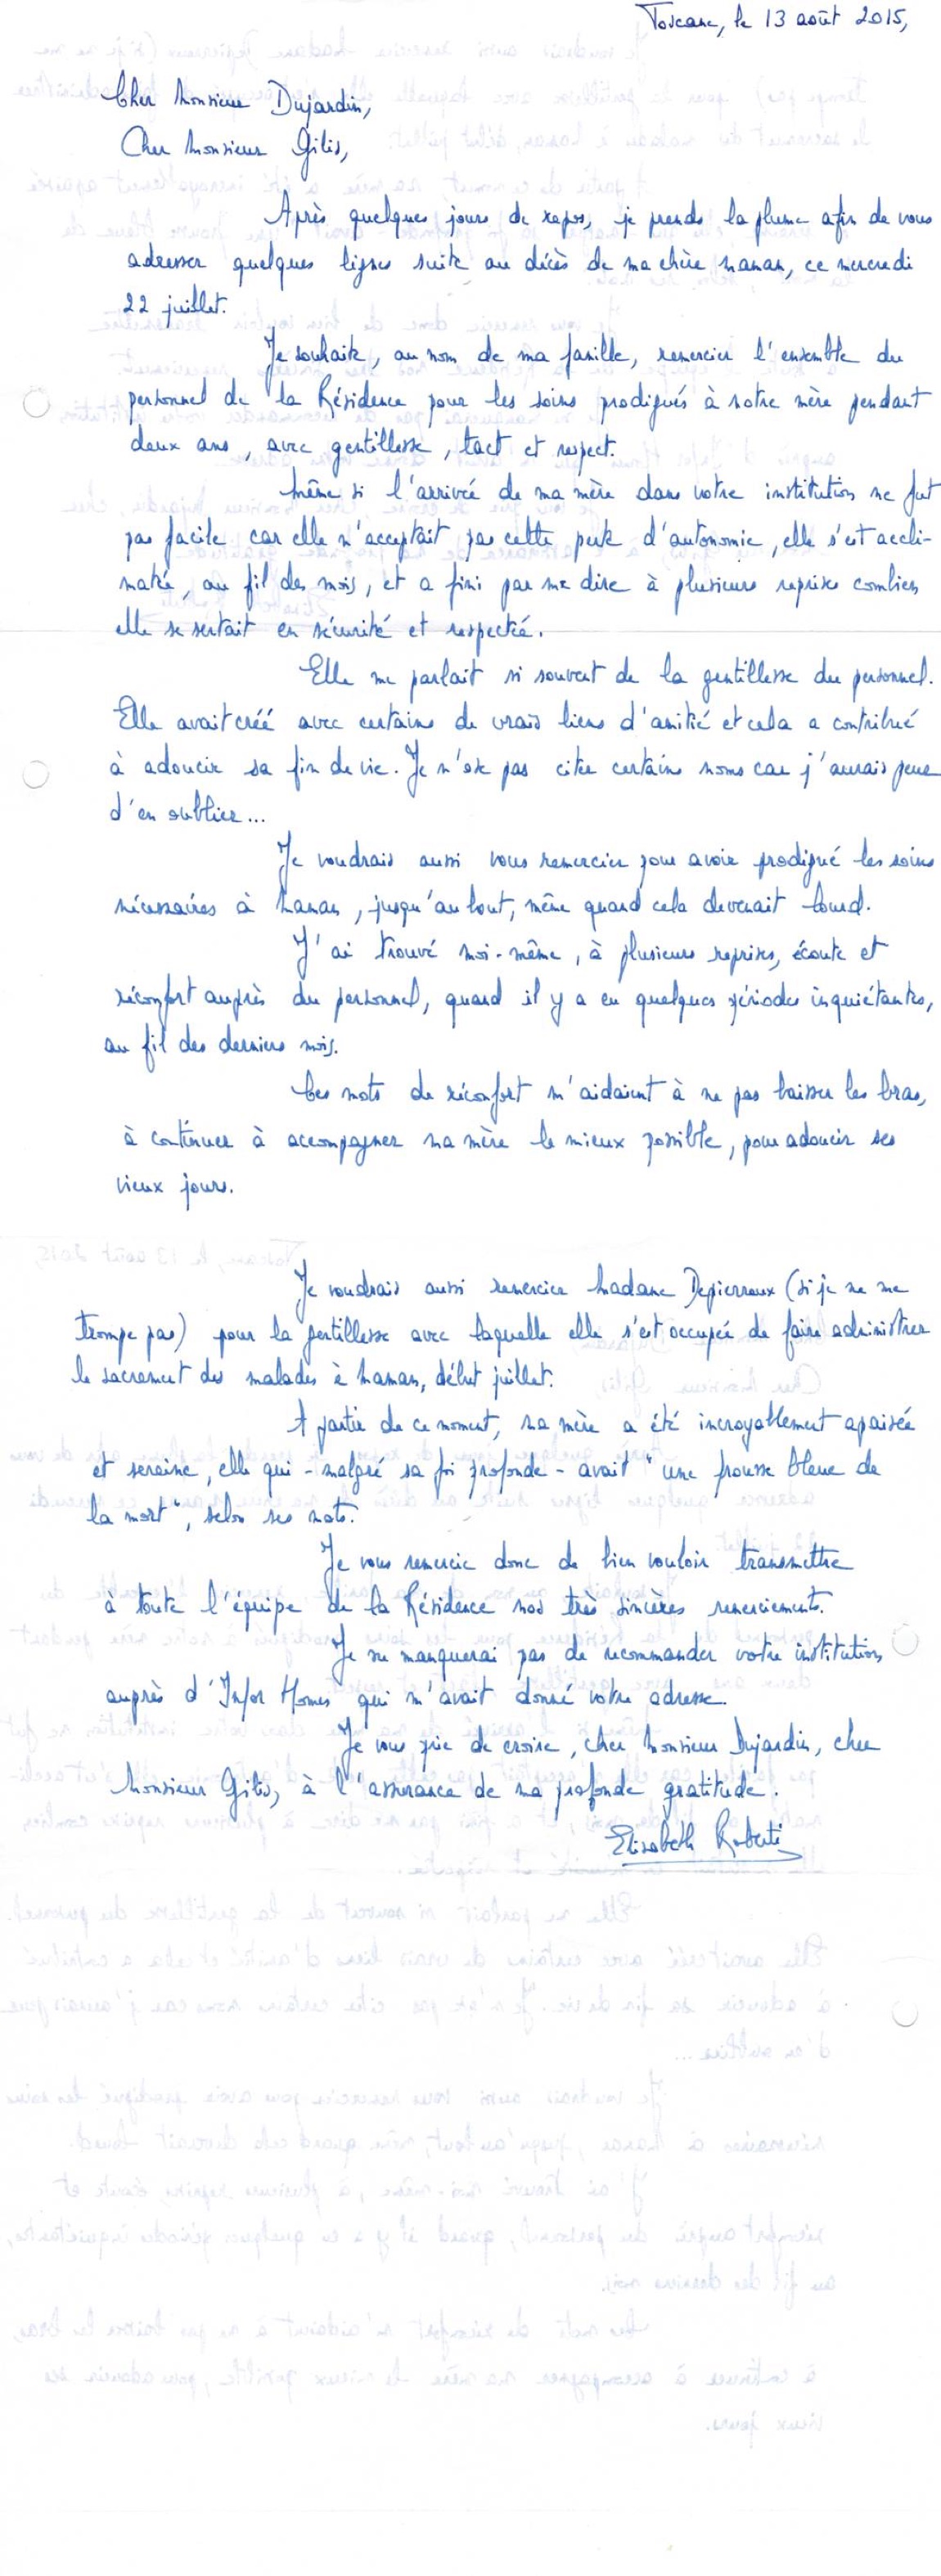 Toscane, le 13 août 2015,
Cher Monsieur Dujardin,
Cher Monsieur Gilis,
Après quelques jours de repos, je prends la plume afin de vous
adresser quelques lignes suite au décès de ma chère maman, ce mercredi
22 juillet.
Je souhaite, au nom de ma famille, remercier l'ensemble du
personnel de la Résidence pour les soins prodigués à notre mère pendant
deux ans, avec gentillesse, tact et respect.
Même si l'arrivée de ma mère dans votre institution ne fut
pas facile car elle n'acceptait pas cette perte d'autonomie, elle s'est accli-
matée, au fil des mois, et a fini par me dire à plusieurs reprises combien
elle se sentait en sécurité et respectée.
Elle me parlait si souvent de la gentillesse du personnel.
Elle avait créé avec certains de vrais liens d'amitié et cela a contribué
à adoucir sa fin de vie. Je n'ose pas citer certains noms car j'aurais peur
d'en oublier...
Je voudrais aussi vous remercier pour avoir prodigué les soins
nécessaires à Maman, jusqu'au bout, même quand cela devenait lourd.
J'ai trouvé moi-même, à plusieurs reprises, écoute et
réconfort auprès du personnel, quand il y a eu quelques périodes inquiétantes,
au fil des derniers mois.
Ces mots de réconfort m'aidaient à ne pas baisser les bras,
à continuer à accompagner ma mère le mieux possible, pour adoucir ses
vieux jours.
Je voudrais aussi remercier Madame Depierreux (si je ne me
trompe pas) pour la gentillesse avec laquelle elle s'est occupée de faire administrer
le sacrement des malades à Maman, début juillet.
A partir de ce moment, ma mère a été incroyablement apaisée
et sereine, elle qui - malgré sa foi profonde - avait "une frousse bleue de
la mort", selon ses mots.
Je vous remercie donc de bien vouloir transmettre
à toute l'équipe de la Résidence nos très sincères remerciements.
Je ne manquerai pas de recommander votre institution
auprès d'Infor Homes qui m'avait donné votre adresse.
Je vous prie de croire, cher Monsieur Dujardin, cher
Monsieur Gilis, à l'assurance de ma profonde gratitude.
Elisabeth Roberti